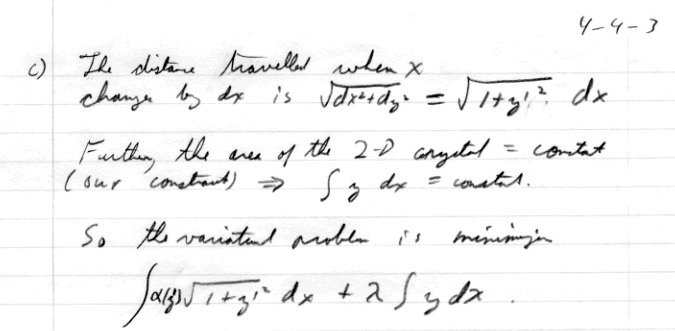 4-4-3
c) The distance travelled when x
changes by dx is √(dx²+dy²) = √(1+y'²) dx
Further, the area of the 2-D crystal = constant
(our constraint) ⇒ ∫ y dx = constant.
So the variational problem is minimize
∫α(y')√(1+y'²) dx + λ ∫ y dx .